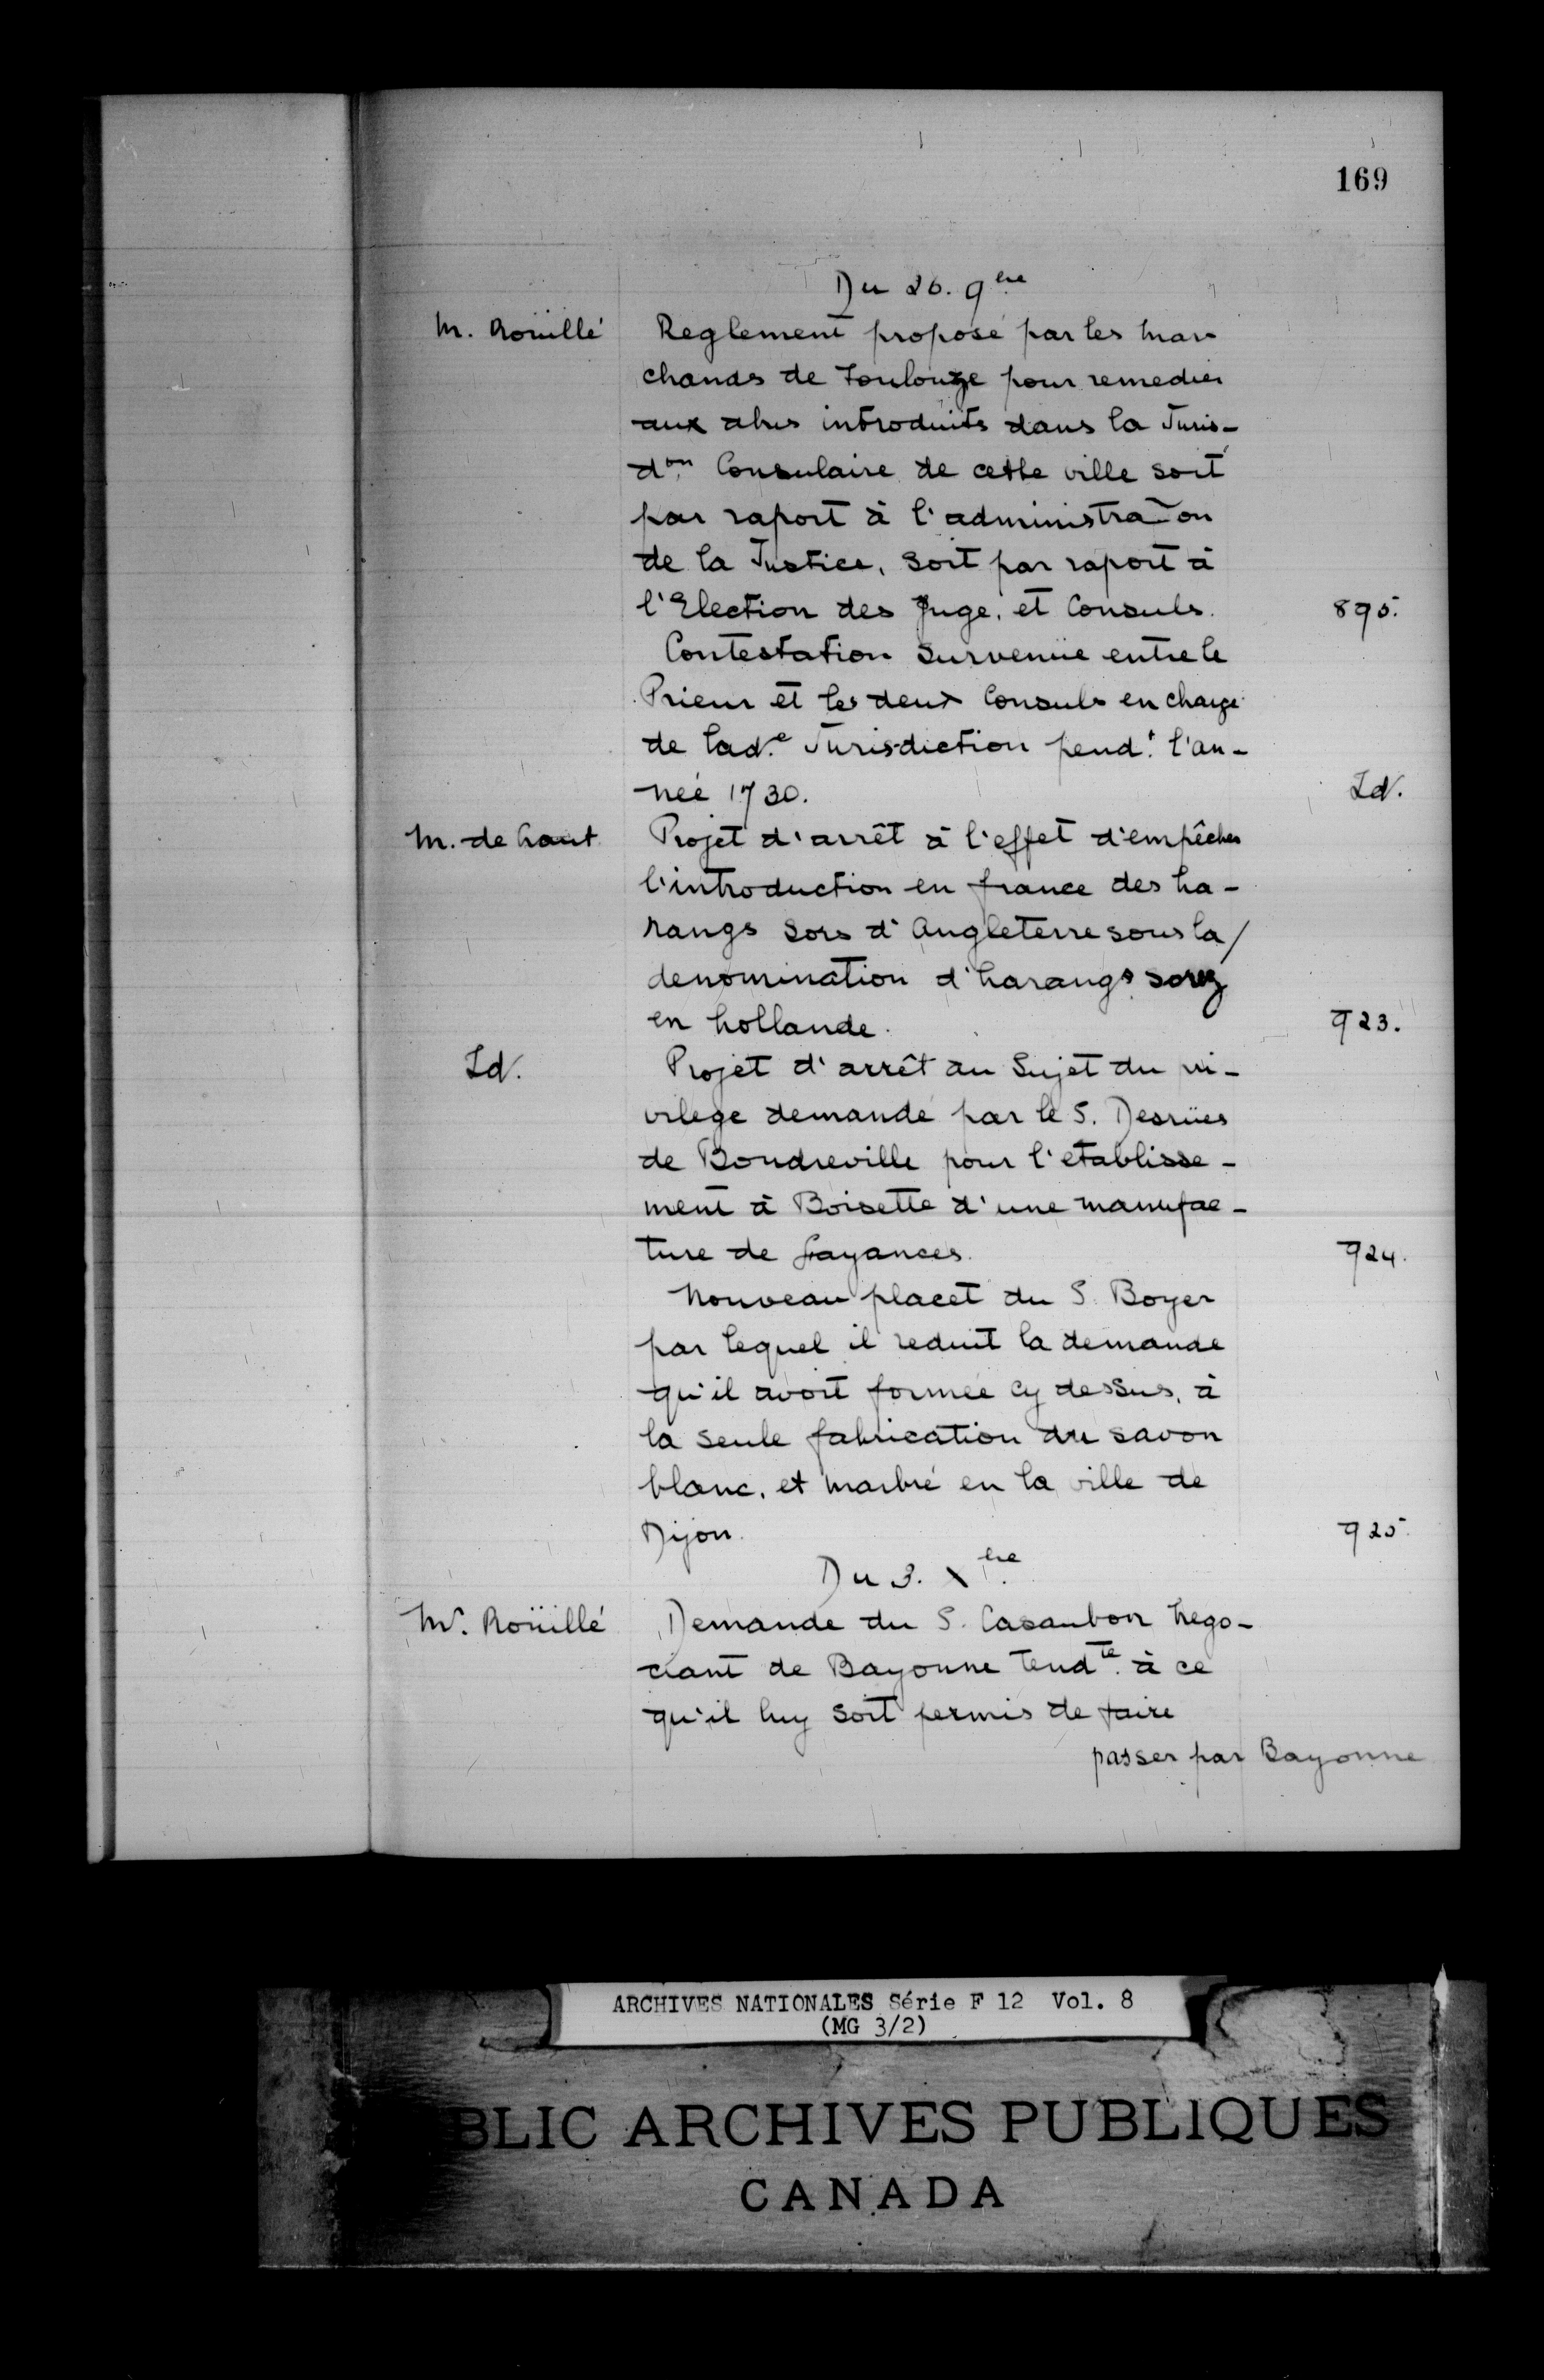 169
Du 26. 9bre
M. Roüillé Reglement proposé par les mar
chands de Toulouze pour remedier
aux abus introduits dans la Juris-
don Consulaire de cette ville soit
par raport à l'administraõn
de la Justice, soit par raport à
l'Election des Juge, et Consuls. 895.
Contestation Survenüe entre le
Prieur et les deux Consuls en charge
de lade Jurisdiction pendt l'an-
née 1730. Id.
M. de haut Projet d'arrêt à l'effet d'empêcher
l'introduction en france des ha-
rangs Sors d'Angleterre sous la/
denomination d'harangs sorez
en hollande. 923.
Id. Projet d'arrêt au Sujet du pri-
vilege demandé par le S. Desrües
de Boudreville pour l'etablisse-
ment à Boisette d'une manufac-
ture de fayances. 924.
Nouveau placet du S. Boyer
par lequel il reduit la demande
qu'il avoit formée cy dessus, à
la seule fabrication du savon
blanc, et marbré en la ville de
Dijon. 925.
Du 3. Xbre
Mr. Roüillé Demande du S. Casaubon Nego-
ciant de Bayonne tendte à ce
qu'il luy soit permis de faire
passer par Bayonne
ARCHIVES NATIONALES Série F 12 Vol. 8
(MG 3/2)
BLIC ARCHIVES PUBLIQUES
CANADA